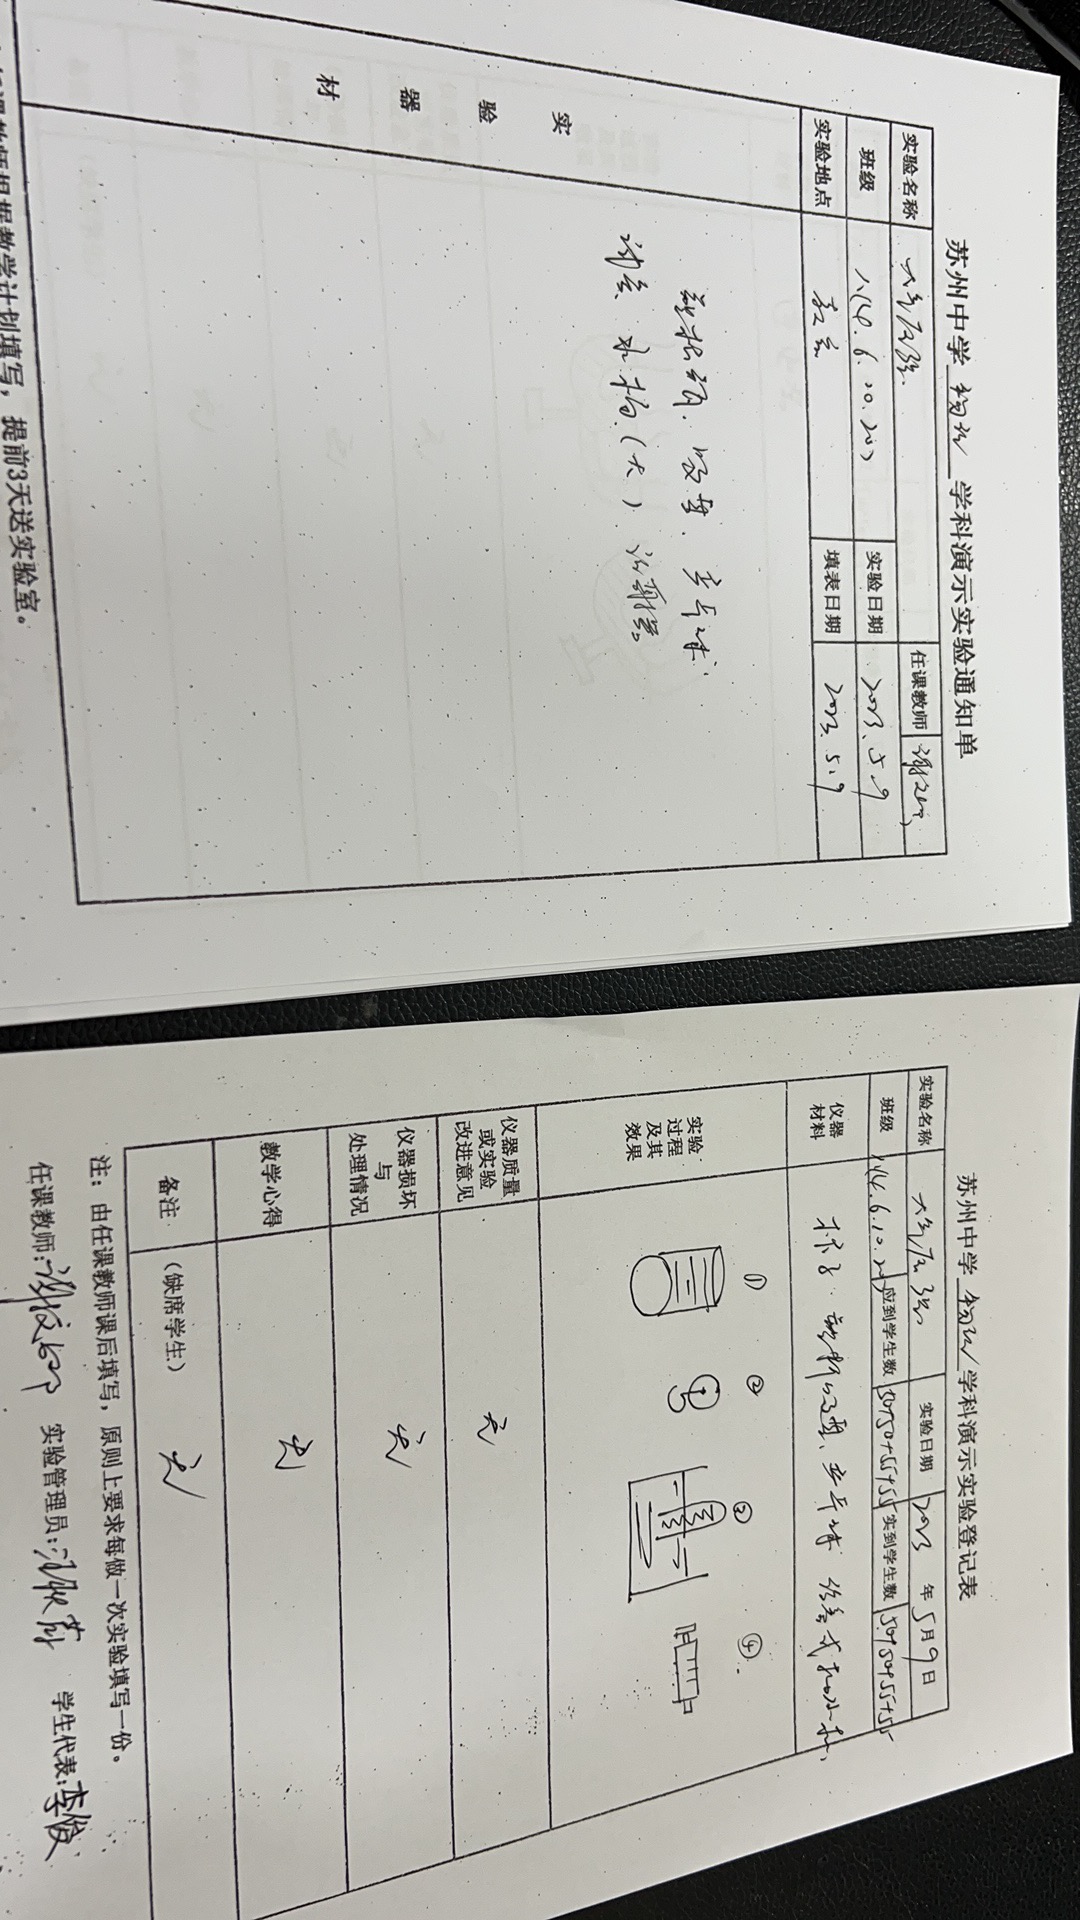 苏州中学 物理 学科演示实验通知单
实验名称 大气压强 任课教师
班级 八(4.6.10.20) 实验日期 2023.5.9
实验地点 教室 填表日期 2023.5.9
实验器材
乒乓球
试管、水槽(大)
任课教师根据教学计划填写，提前3天送实验室。
苏州中学 物理 学科演示实验登记表
实验名称 大气压强 实验日期 2023 年 5 月 9 日
班级 应到学生数 50+50+55+55 实到学生数 50+50+55+55
仪器材料 杯子、塑料吸盘、乒乓球
实验过程及其效果 ① ② ③ ④
仪器质量或实验改进意见 无
仪器损坏与处理情况 无
教学心得 无
备注 (缺席学生) 无
注：由任课教师课后填写，原则上要求每做一次实验填写一份。
任课教师: 实验管理员: 学生代表: 李俊